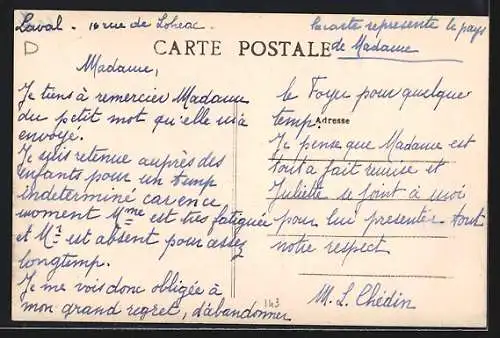 Laval. 10 rue de Lohéac.
la carte represente le pays
de Madame
D
CARTE POSTALE
Madame,
Je tiens à remercier Madame
du petit mot qu'elle m'a
envoyé.
Je suis retenue auprès des
enfants pour un temp
indeterminé car en ce
moment Mme est très fatiguée
et Mr est absent pour assez
longtemp.
Je me vois donc obligée à
mon grand regret, d'abandonner
143
le Foyer pour quelque
temp.
Adresse
Je pense que Madame est
tout a fait remise et
Juliette se joint à moi
pour lui presenter tout
notre respect
M. L. Chédin